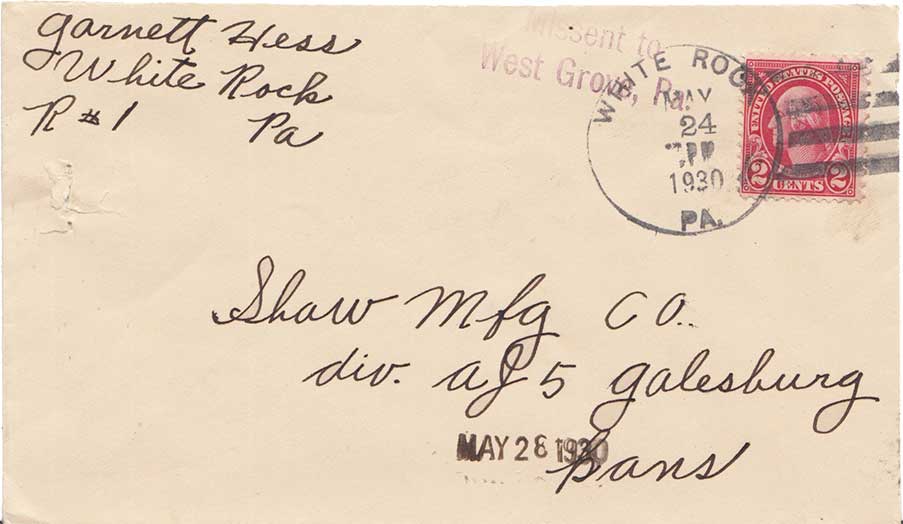 Garnett Hess
White Rock
R #1 Pa
Missent to
West Grove, Pa.
WHITE ROCK
MAY
24
PM
1930
PA.
UNITED STATES POSTAGE
2 CENTS 2
Shaw Mfg Co.
div. aJ5 Galesburg
Kans
MAY 28 1930